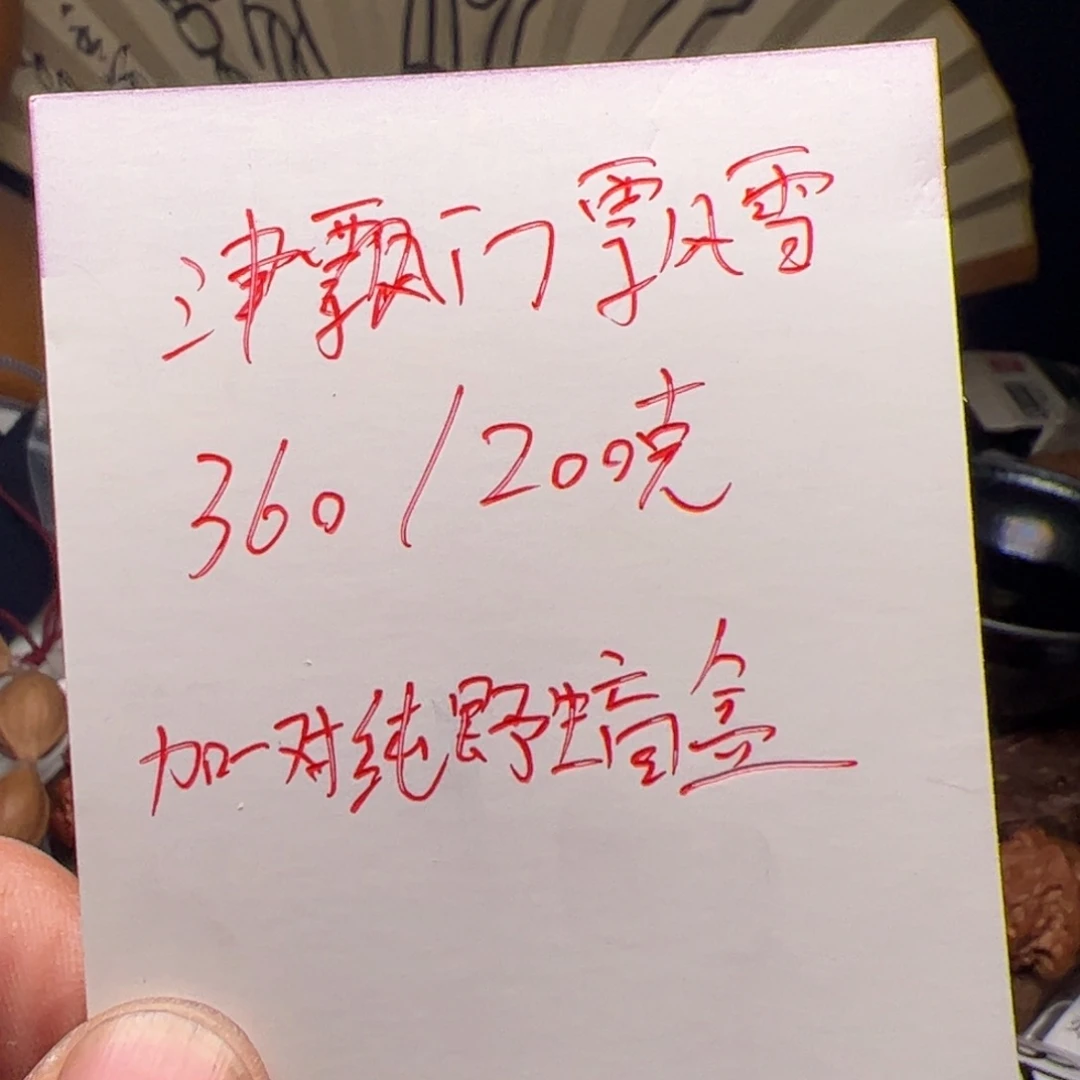 津门飘雪
360/200克
加一对纯野生盲盒